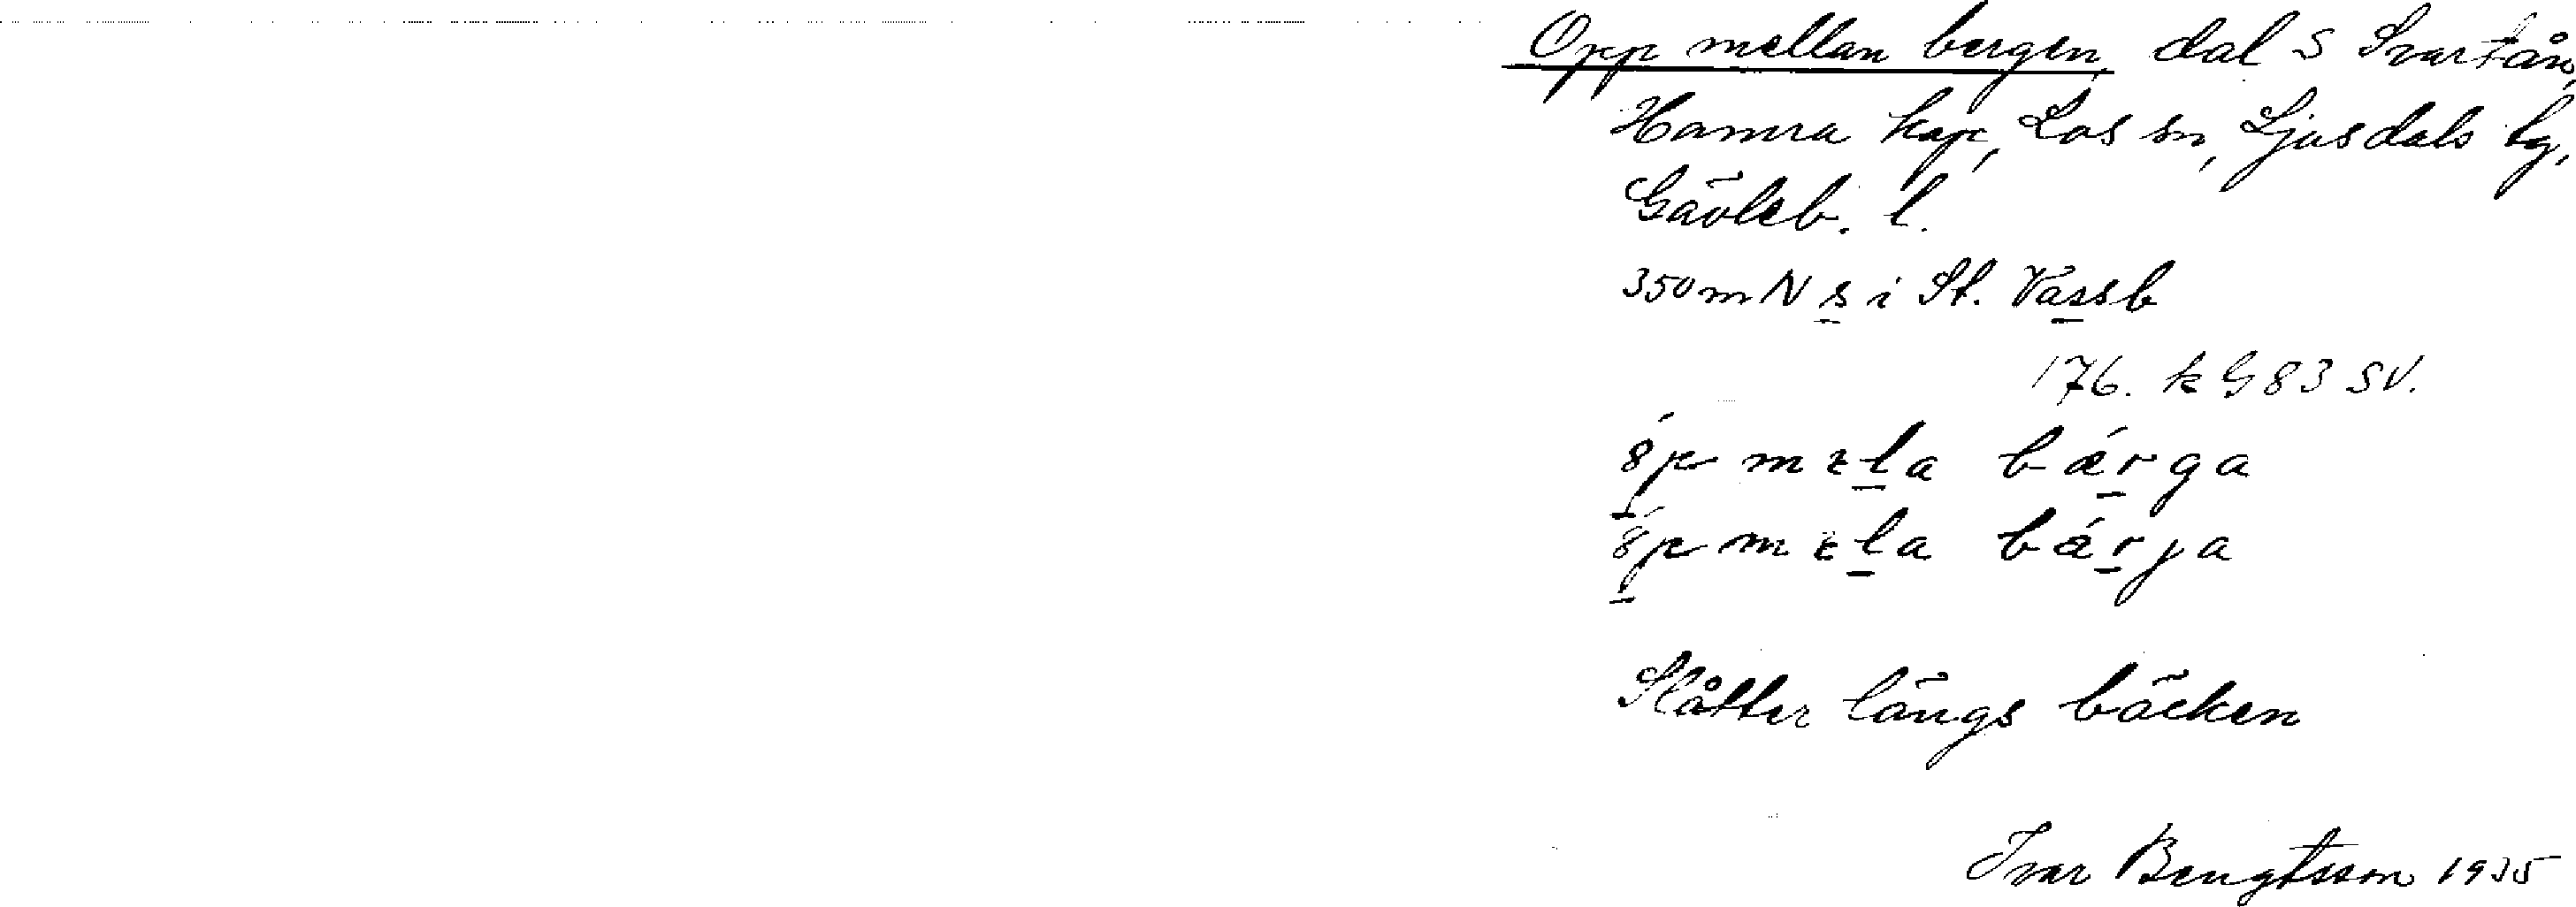 Opp mellan bergen, dal S Svartån,
Hamra kap, Los sn, Ljusdals tg,
Gävleb. l.
350 m N s i St. Vassb
176. k G 83 SV.
b ǽ r g a
b ǽ r j a
Slåtter längs bäcken
Ivar Bengtsson 1935